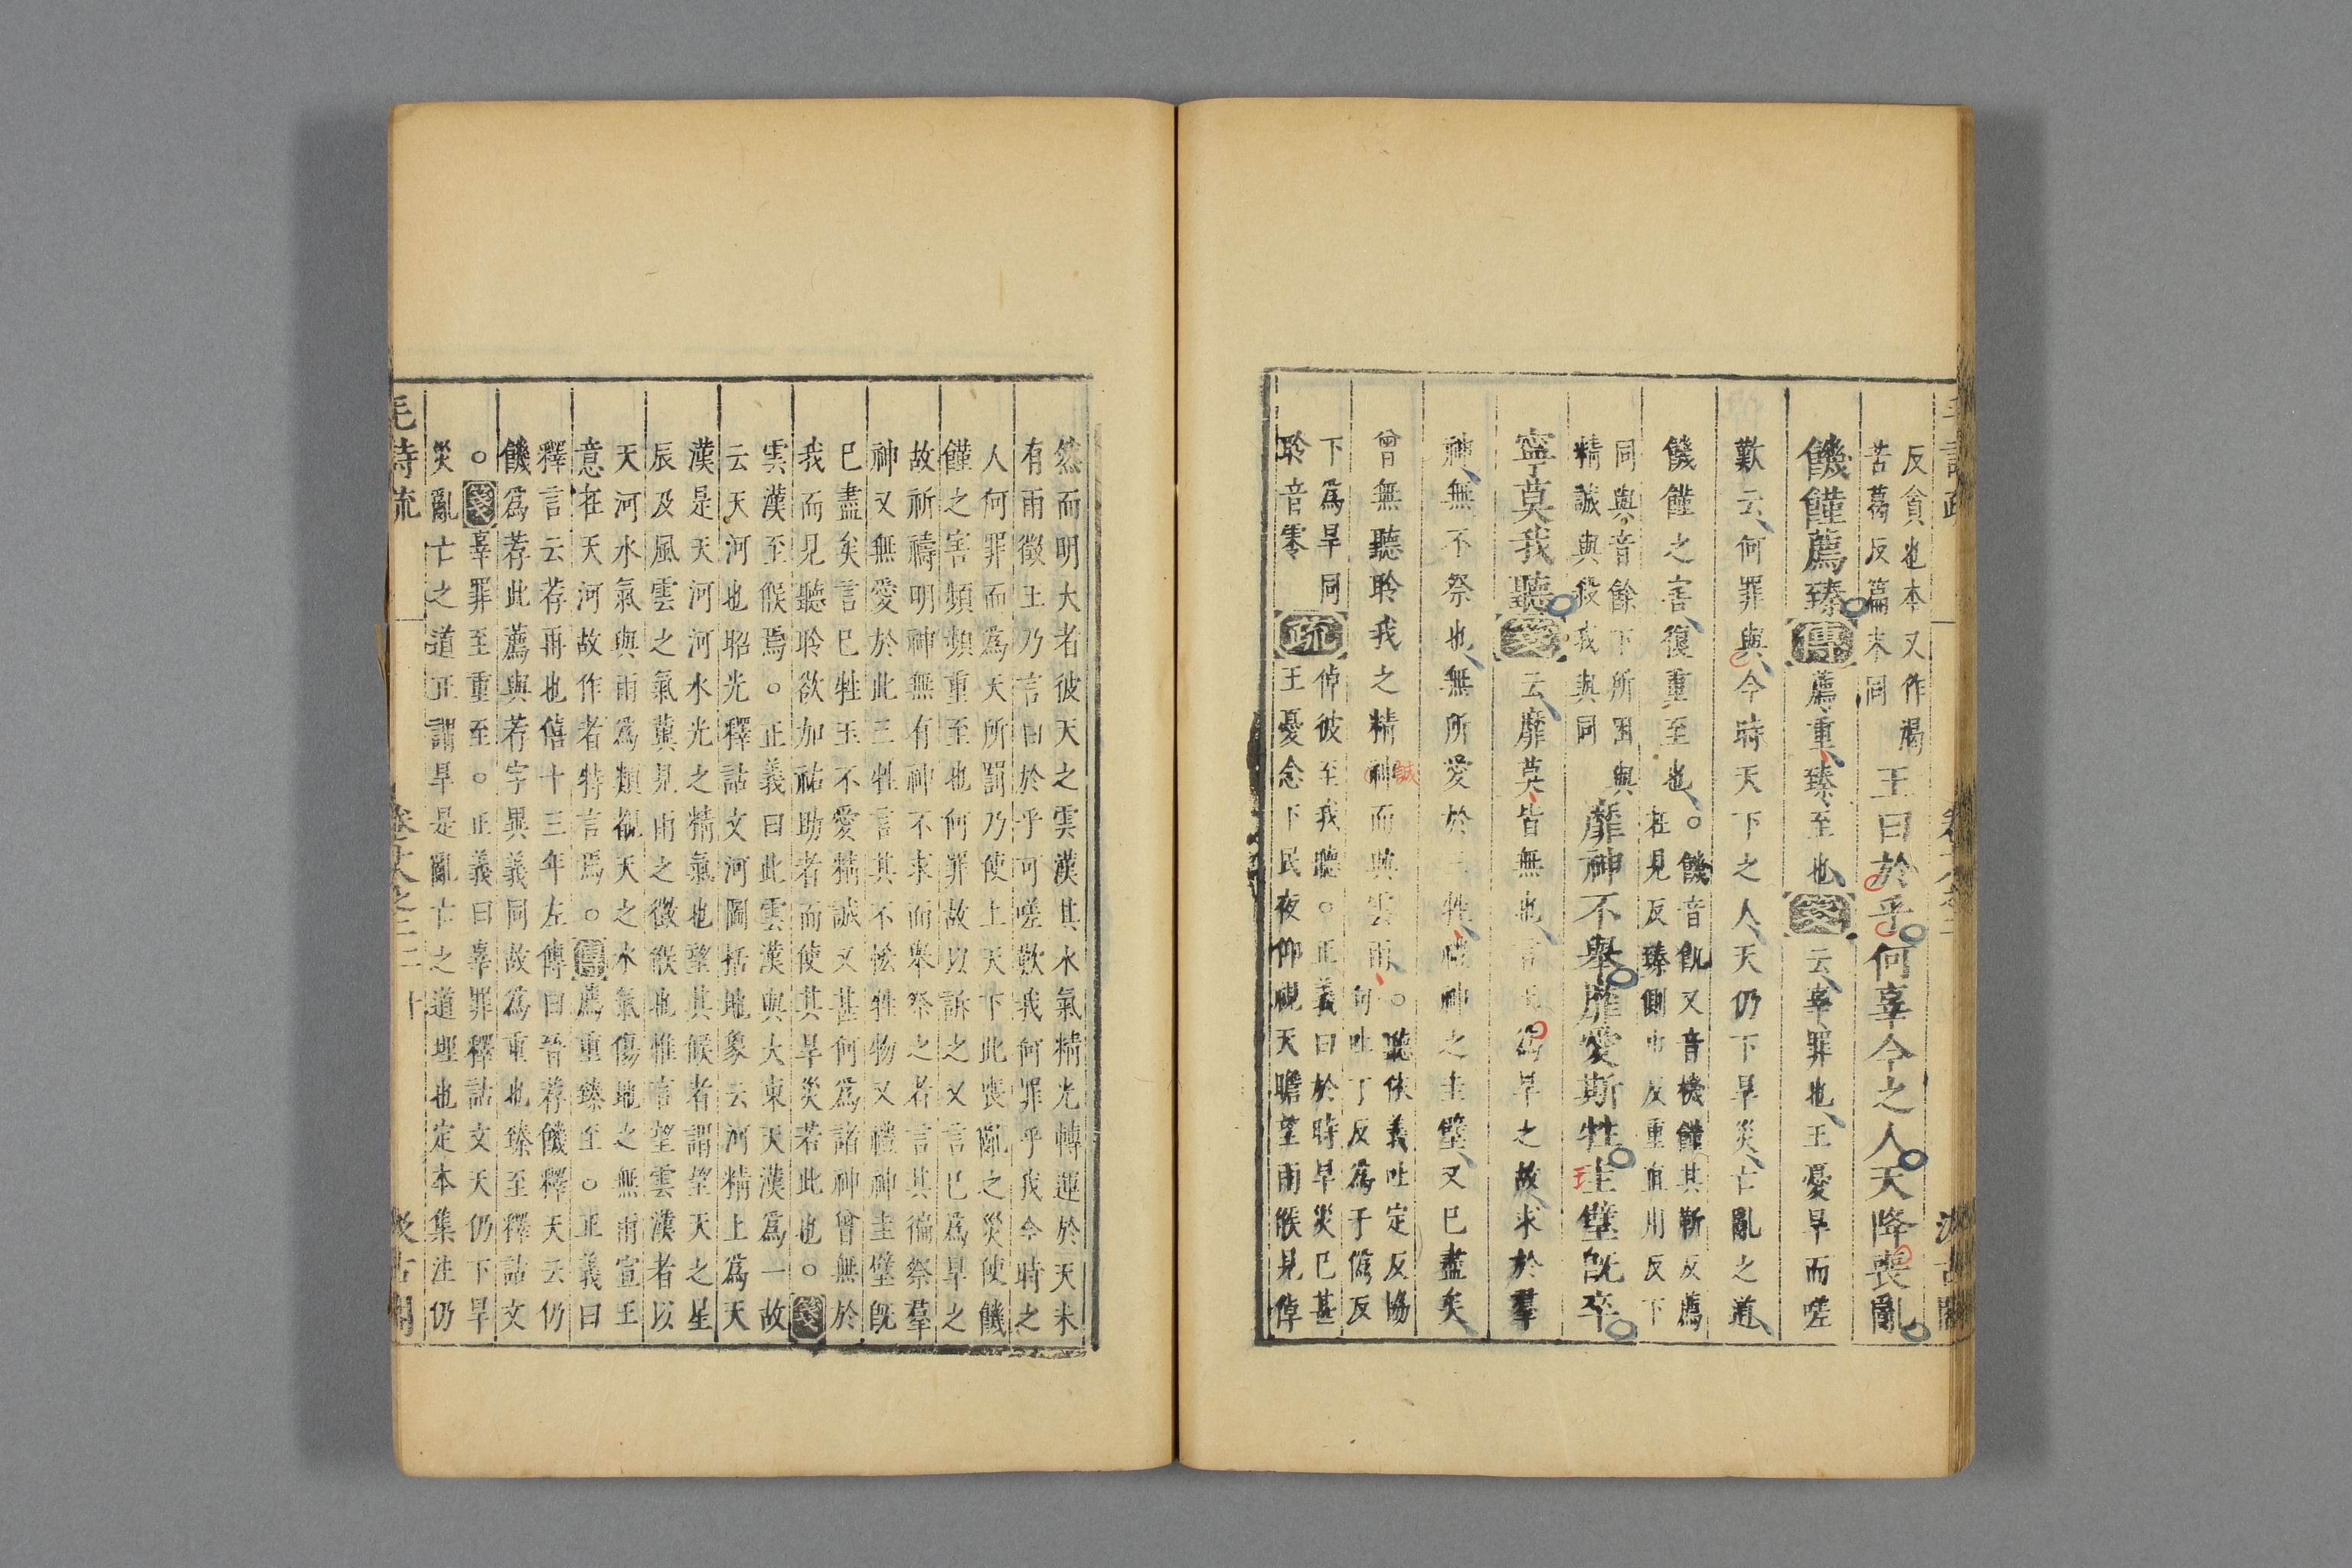 反貪也本又作褐
苦葛反篇末同
王曰於乎何辜今之人天降喪亂
饑饉薦臻傳薦重臻至也箋云辜罪也王憂旱而嗟
歎云何罪與今時天下之人天仍下旱災亡亂之道
饑饉之害復重至也○饑音飢又音機饉其靳反薦
在見反臻側巾反重直用反下
同與音餘下所困與
精誠與殺我與同
靡神不舉靡愛斯牲圭璧既卒
寧莫我聽箋云靡莫皆無也言王為旱之故求於羣
神無不祭也無所愛於三牲禮神之圭璧又已盡矣
曾無聽聆我之精神而興雲雨○聽依義吐定反協
句吐丁反為于偽反
下為旱同
聆音零
疏倬彼至我聽○正義曰於時旱災已甚
王憂念下民夜仰視天瞻望雨候見倬
誠
王
然而明大者彼天之雲漢其水氣精光轉運於天未
有雨徵王乃言曰於乎可嗟歎我何罪乎我今時之
人何罪而為天所罰乃使上天下此喪亂之災使饑
饉之害頻頻重至也何罪故以訴之又言已為旱之
故祈禱明神無有神不求而舉祭之者言其徧祭羣
神又無愛於此三牲言其不恡牲物又禮神圭璧既
已盡矣言已牲玉不愛精誠又甚何為諸神曾無於
我而見聽聆欲加祐助者而使其旱災若此也○箋
雲漢至候焉○正義曰此雲漢與大東天漢為一故
云天河也昭光釋詁文河圖括地象云河精上為天
漢是天河河水光之精氣也望其候者謂望天之星
辰及風雲之氣冀見雨之徵候也惟言望雲漢者以
天河水氣與雨為類觀天之水氣傷地之無雨宣王
意在天河故作者特言焉○傳薦重臻至○正義曰
釋言云荐再也僖十三年左傳曰晉荐饑釋天云仍
饑為荐此薦與荐字異義同故為重也臻至釋詁文
○箋辜罪至重至○正義曰辜罪釋詁文天仍下旱
災亂亡之道正謂旱是亂亡之道理也定本集注仍
毛詩疏
卷十八之二
十
汲古閣